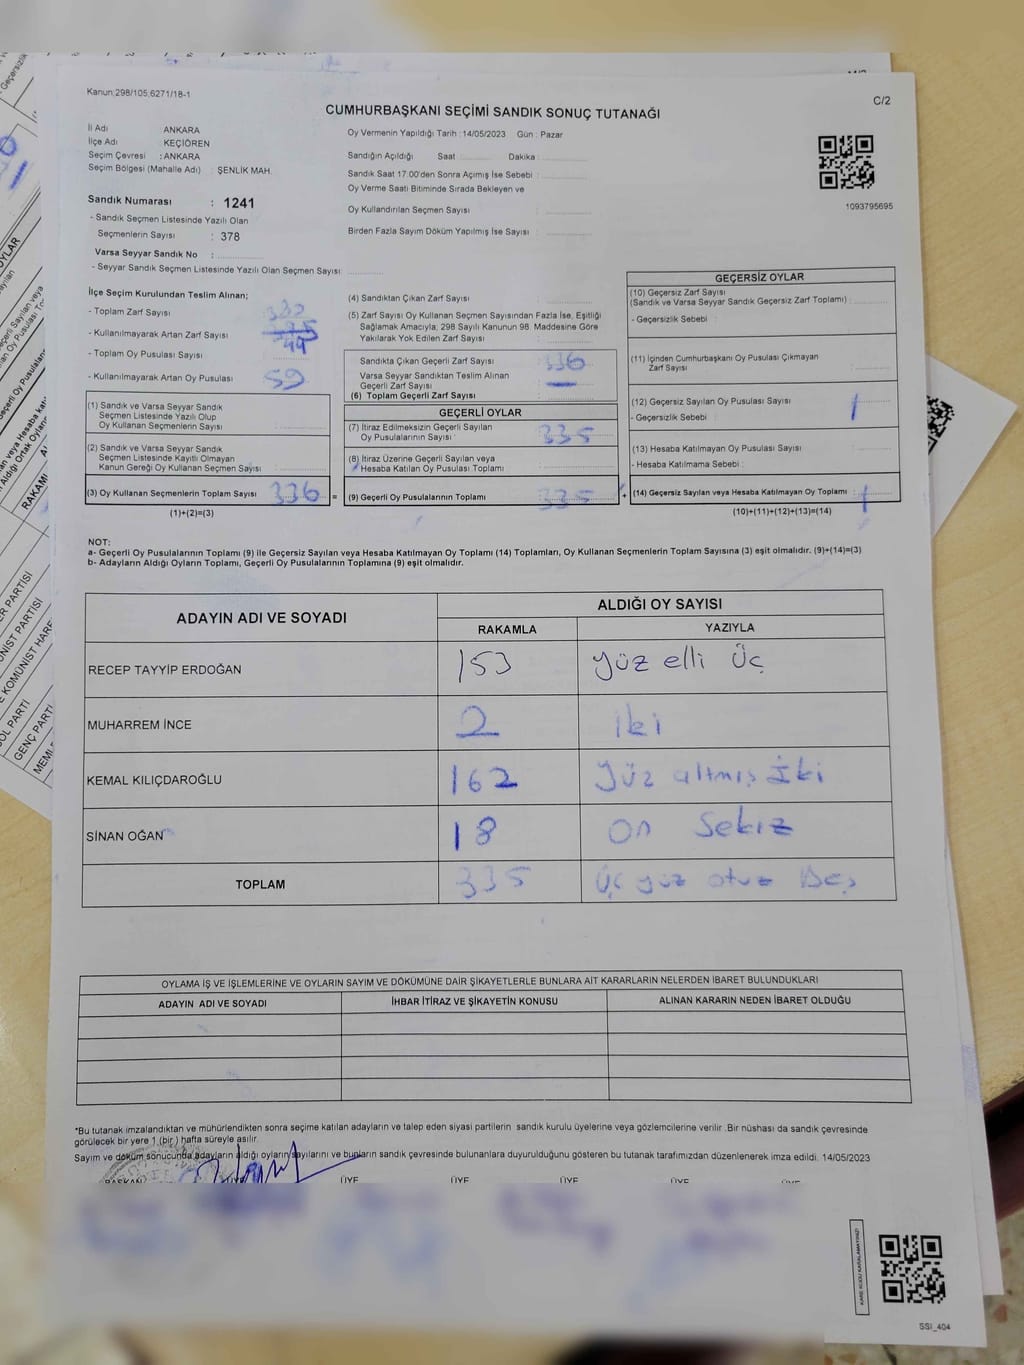 Kanun;298/105,6271/18-1
C/2
CUMHURBAŞKANI SEÇİMİ SANDIK SONUÇ TUTANAĞI
İl Adı ANKARA
İlçe Adı KEÇİÖREN
Seçim Çevresi : ANKARA
Seçim Bölgesi (Mahalle Adı) : ŞENLİK MAH.
Oy Vermenin Yapıldığı Tarih : 14/05/2023 Gün : Pazar
Sandığın Açıldığı Saat Dakika :
Sandık Saat 17.00'den Sonra Açımış İse Sebebi :
Oy Verme Saati Bitiminde Sırada Bekleyen ve
Oy Kullandırılan Seçmen Sayısı :
Birden Fazla Sayım Döküm Yapılmış İse Sayısı :
1093795695
Sandık Numarası : 1241
- Sandık Seçmen Listesinde Yazılı Olan
Seçmenlerin Sayısı : 378
Varsa Seyyar Sandık No :
- Seyyar Sandık Seçmen Listesinde Yazılı Olan Seçmen Sayısı:
İlçe Seçim Kurulundan Teslim Alınan;
- Toplam Zarf Sayısı
- Kullanılmayarak Artan Zarf Sayısı
- Toplam Oy Pusulası Sayısı 44
- Kullanılmayarak Artan Oy Pusulası 59
(1) Sandık ve Varsa Seyyar Sandık
Seçmen Listesinde Yazılı Olup
Oy Kullanan Seçmenlerin Sayısı :
(2) Sandık ve Varsa Seyyar Sandık
Seçmen Listesinde Kayıtlı Olmayan
Kanun Gereği Oy Kullanan Seçmen Sayısı :
(3) Oy Kullanan Seçmenlerin Toplam Sayısı 336 =
(1)+(2)=(3)
(4) Sandıktan Çıkan Zarf Sayısı :
(5) Zarf Sayısı Oy Kullanan Seçmen Sayısından Fazla İse, Eşitliği
Sağlamak Amacıyla, 298 Sayılı Kanunun 98. Maddesine Göre
Yakılarak Yok Edilen Zarf Sayısı :
Sandıkta Çıkan Geçerli Zarf Sayısı 336
Varsa Seyyar Sandıktan Teslim Alınan
Geçerli Zarf Sayısı —
(6) Toplam Geçerli Zarf Sayısı
GEÇERLİ OYLAR
(7) İtiraz Edilmeksizin Geçerli Sayılan
Oy Pusulalarının Sayısı : 335
(8) İtiraz Üzerine Geçerli Sayılan veya
Hesaba Katılan Oy Pusulası Toplamı
(9) Geçerli Oy Pusulalarının Toplamı 335 +
GEÇERSİZ OYLAR
(10) Geçersiz Zarf Sayısı
(Sandık ve Varsa Seyyar Sandık Geçersiz Zarf Toplamı) :
- Geçersizlik Sebebi :
(11) İçinden Cumhurbaşkanı Oy Pusulası Çıkmayan
Zarf Sayısı :
(12) Geçersiz Sayılan Oy Pusulası Sayısı 1
- Geçersizlik Sebebi :
(13) Hesaba Katılmayan Oy Pusulası Sayısı
- Hesaba Katılmama Sebebi :
(14) Geçersiz Sayılan veya Hesaba Katılmayan Oy Toplamı : 1
(10)+(11)+(12)+(13)=(14)
NOT:
a- Geçerli Oy Pusulalarının Toplamı (9) ile Geçersiz Sayılan veya Hesaba Katılmayan Oy Toplamı (14) Toplamları, Oy Kullanan Seçmenlerin Toplam Sayısına (3) eşit olmalıdır. (9)+(14)=(3)
b- Adayların Aldığı Oyların Toplamı, Geçerli Oy Pusulalarının Toplamına (9) eşit olmalıdır.
ADAYIN ADI VE SOYADI ALDIĞI OY SAYISI
RAKAMLA YAZIYLA
RECEP TAYYİP ERDOĞAN 153 yüz elli üç
MUHARREM İNCE 2 iki
KEMAL KILIÇDAROĞLU 162 yüz altmış iki
SİNAN OĞAN 18 on sekiz
TOPLAM 335 üç yüz otuz beş
OYLAMA İŞ VE İŞLEMLERİNE VE OYLARIN SAYIM VE DÖKÜMÜNE DAİR ŞİKAYETLERLE BUNLARA AİT KARARLARIN NELERDEN İBARET BULUNDUKLARI
ADAYIN ADI VE SOYADI İHBAR İTİRAZ VE ŞİKAYETİN KONUSU ALINAN KARARIN NEDEN İBARET OLDUĞU
*Bu tutanak imzalandıktan ve mühürlendikten sonra seçime katılan adayların ve talep eden siyasi partilerin sandık kurulu üyelerine veya gözlemcilerine verilir .Bir nüshası da sandık çevresinde
görülecek bir yere 1 (bir ) hafta süreyle asılır.
Sayım ve döküm sonucunda adayların aldığı oyların sayılarını ve bunların sandık çevresinde bulunanlara duyurulduğunu gösteren bu tutanak tarafımızdan düzenlenerek imza edildi. 14/05/2023
BAŞKAN ÜYE ÜYE ÜYE ÜYE ÜYE
KARE KODU KARALAMAYINIZ!
SSI_404